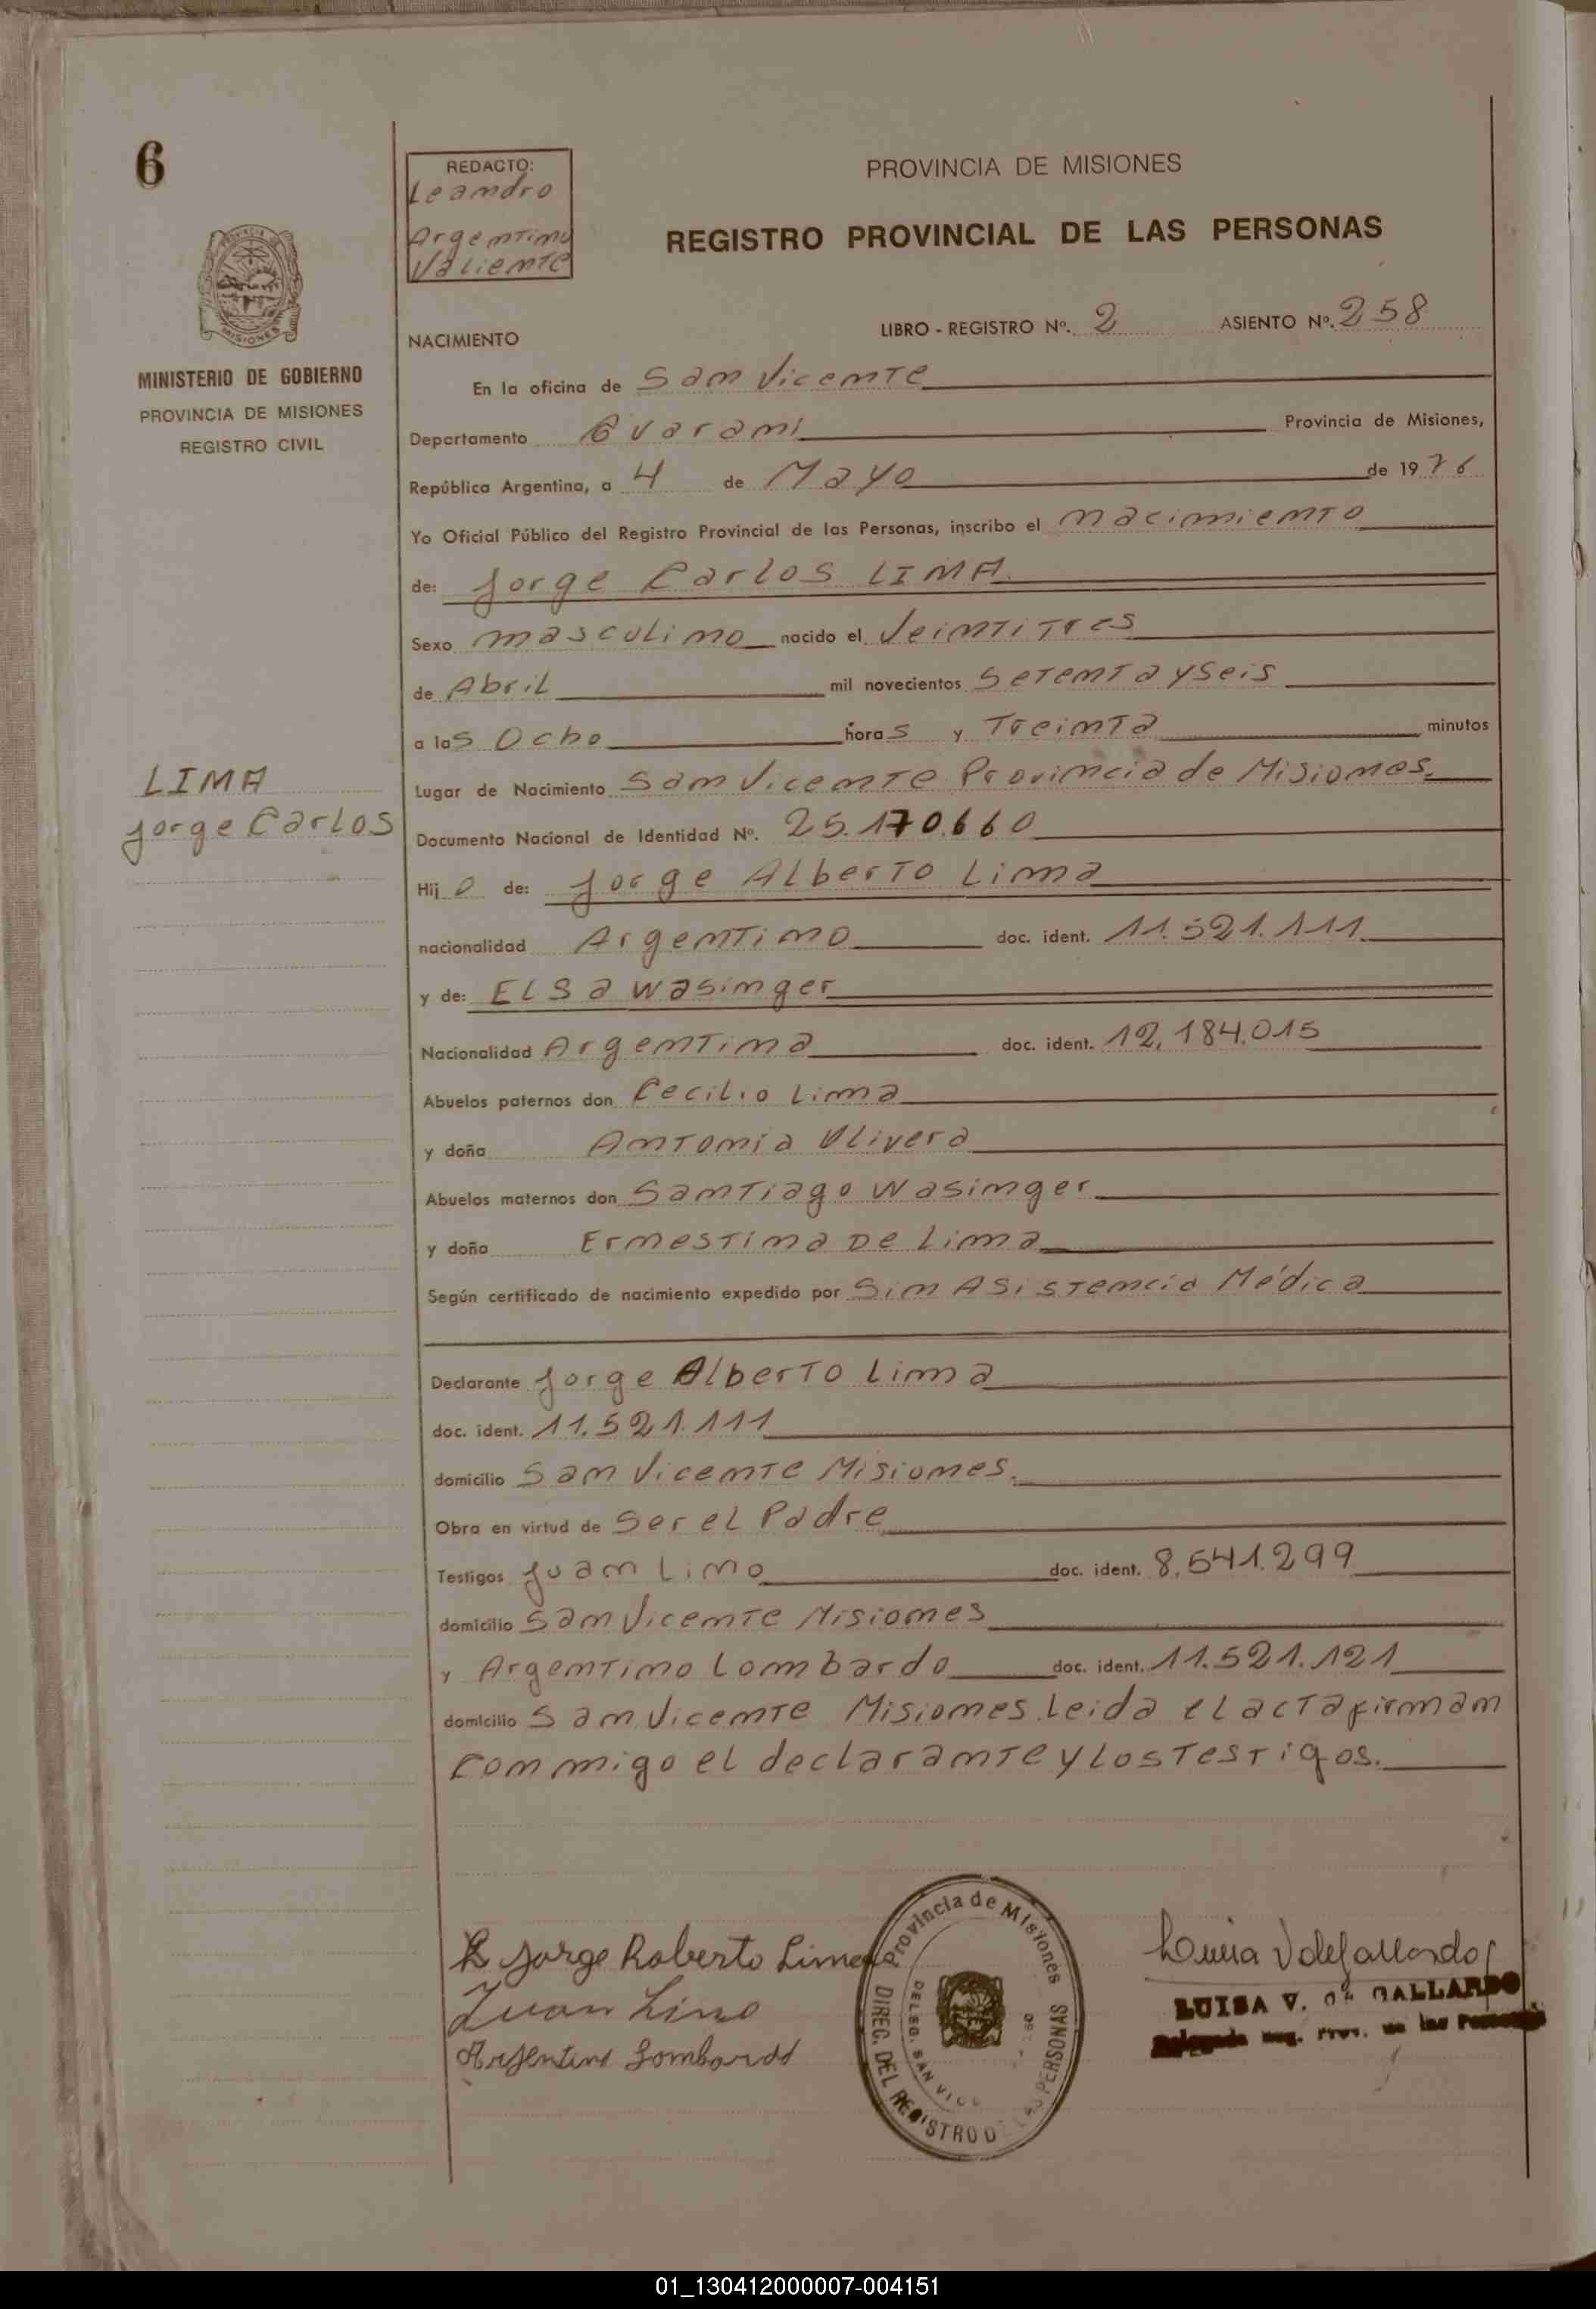 6
REDACTO:
Leandro
Argentino
Valiente
PROVINCIA DE MISIONES
REGISTRO PROVINCIAL DE LAS PERSONAS
PROVINCIA DE
MISIONES
MINISTERIO DE GOBIERNO
PROVINCIA DE MISIONES
REGISTRO CIVIL
NACIMIENTO
LIBRO - REGISTRO Nº. 2 ASIENTO Nº. 258
En la oficina de San Vicente
Departamento Guarani Provincia de Misiones,
República Argentina, a 4 de Mayo de 1976
Yo Oficial Público del Registro Provincial de las Personas, inscribo el nacimiento
de: Jorge Carlos LIMA
Sexo masculino nacido el Veintitres
de Abril mil novecientos Setenta y Seis
a las Ocho horas y Treinta minutos
LIMA
Jorge Carlos
Lugar de Nacimiento San Vicente Provincia de Misiones.
Documento Nacional de Identidad Nº. 25.170.660
Hijo de: Jorge Alberto Lima
nacionalidad Argentino doc. ident. 11.521.111
y de: ELSa Wasinger
Nacionalidad Argentina doc. ident. 12.184.015
Abuelos paternos don Cecilio Lima
y doña Antonia Olivera
Abuelos maternos don Santiago Wasinger
y doña Ernestina De Lima
Según certificado de nacimiento expedido por Sin Asistencia Médica
Declarante Jorge Alberto Lima
doc. ident. 11.521.111
domicilio San Vicente Misiones.
Obra en virtud de Ser el Padre
Testigos Juan Lino doc. ident. 8.541.299
domicilio San Vicente Misiones
y Argentino Lombardo doc. ident. 11.521.121
domicilio San Vicente Misiones. Leida el acta firman
conmigo el declarante y los testigos.
Jorge Roberto Lima
Juan Lino
Argentino Lombardo
Provincia de Misiones
DIREC. DEL REGISTRO DE LAS PERSONAS
DELEG. SAN VICE
LUISA V. DE GALLARDO
Reg. Prov. de las Personas
01_130412000007-004151